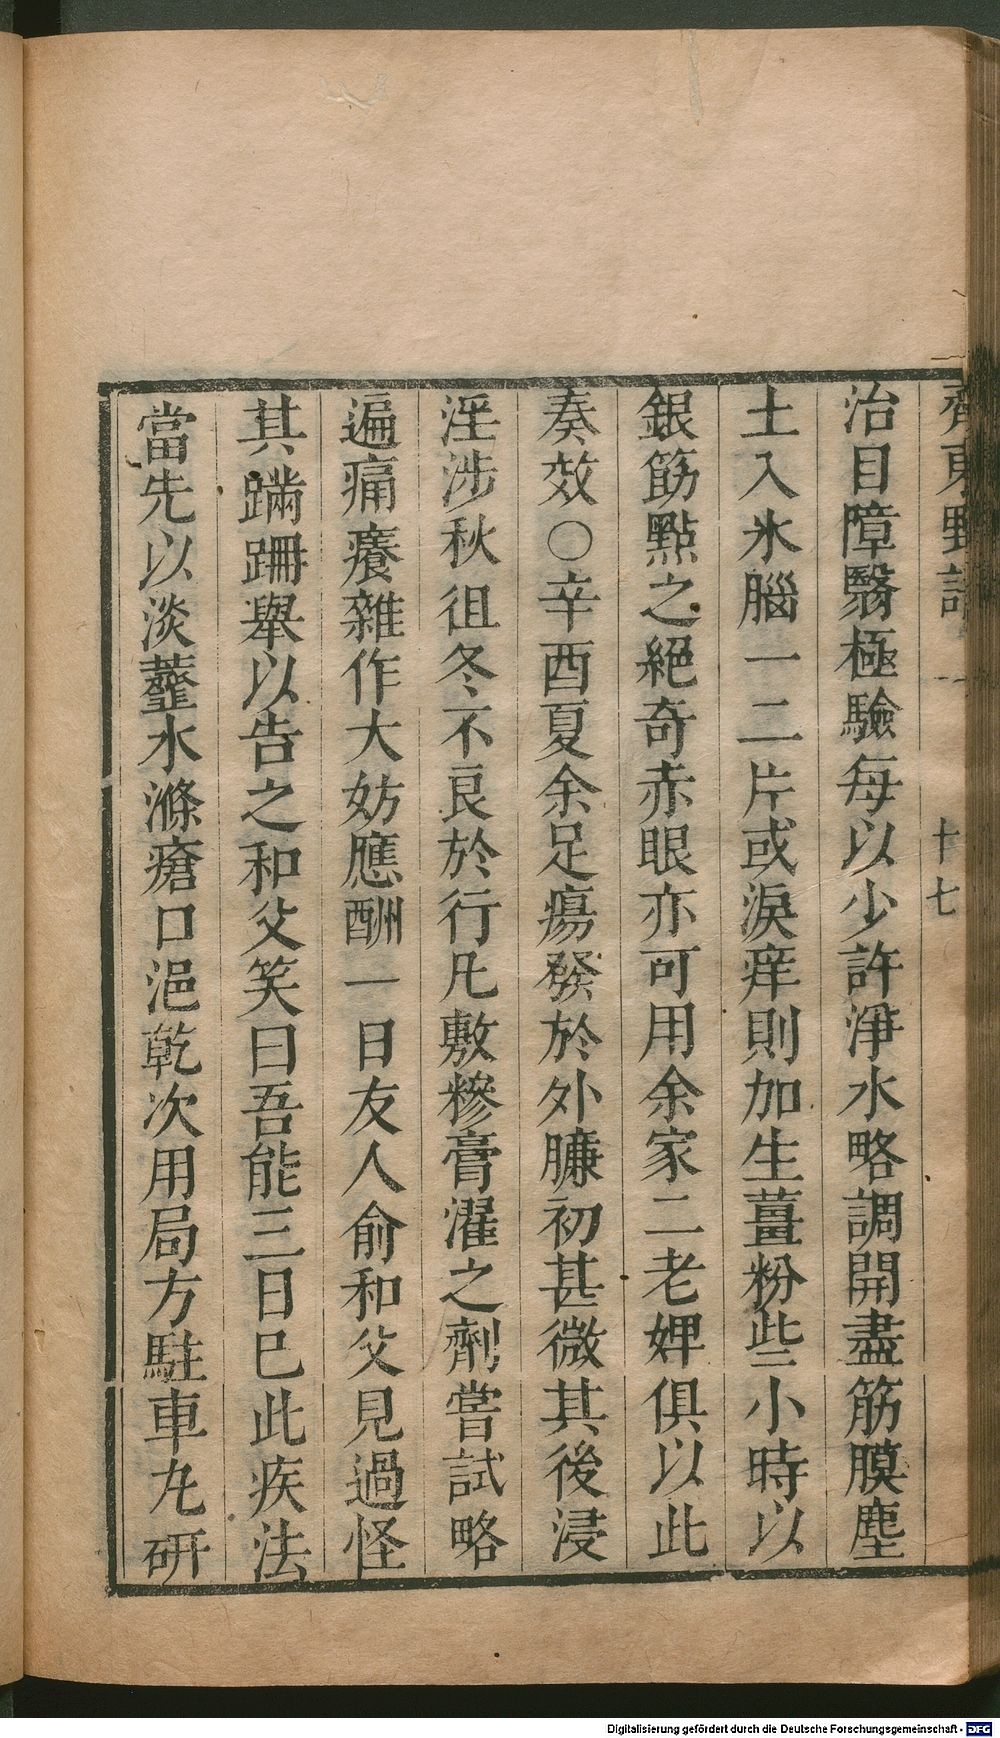 齊東野語
十七
治目障翳極驗每以少許淨水略調開盡筋膜塵
土入氷腦一二片或淚痒則加生薑粉些小時以
銀筯點之絕奇赤眼亦可用余家二老婢俱以此
奏效○辛酉夏余足瘍發於外臁初甚微其後浸
淫涉秋徂冬不良於行凡敷糝膏濯之劑嘗試略
遍痛癢雜作大妨應酬一日友人俞和父見過怪
其蹣跚舉以告之和父笑曰吾能三日已此疾法
當先以淡虀水滌瘡口浥乾次用局方駐車丸研
Digitalisierung gefördert durch die Deutsche Forschungsgemeinschaft - DFG